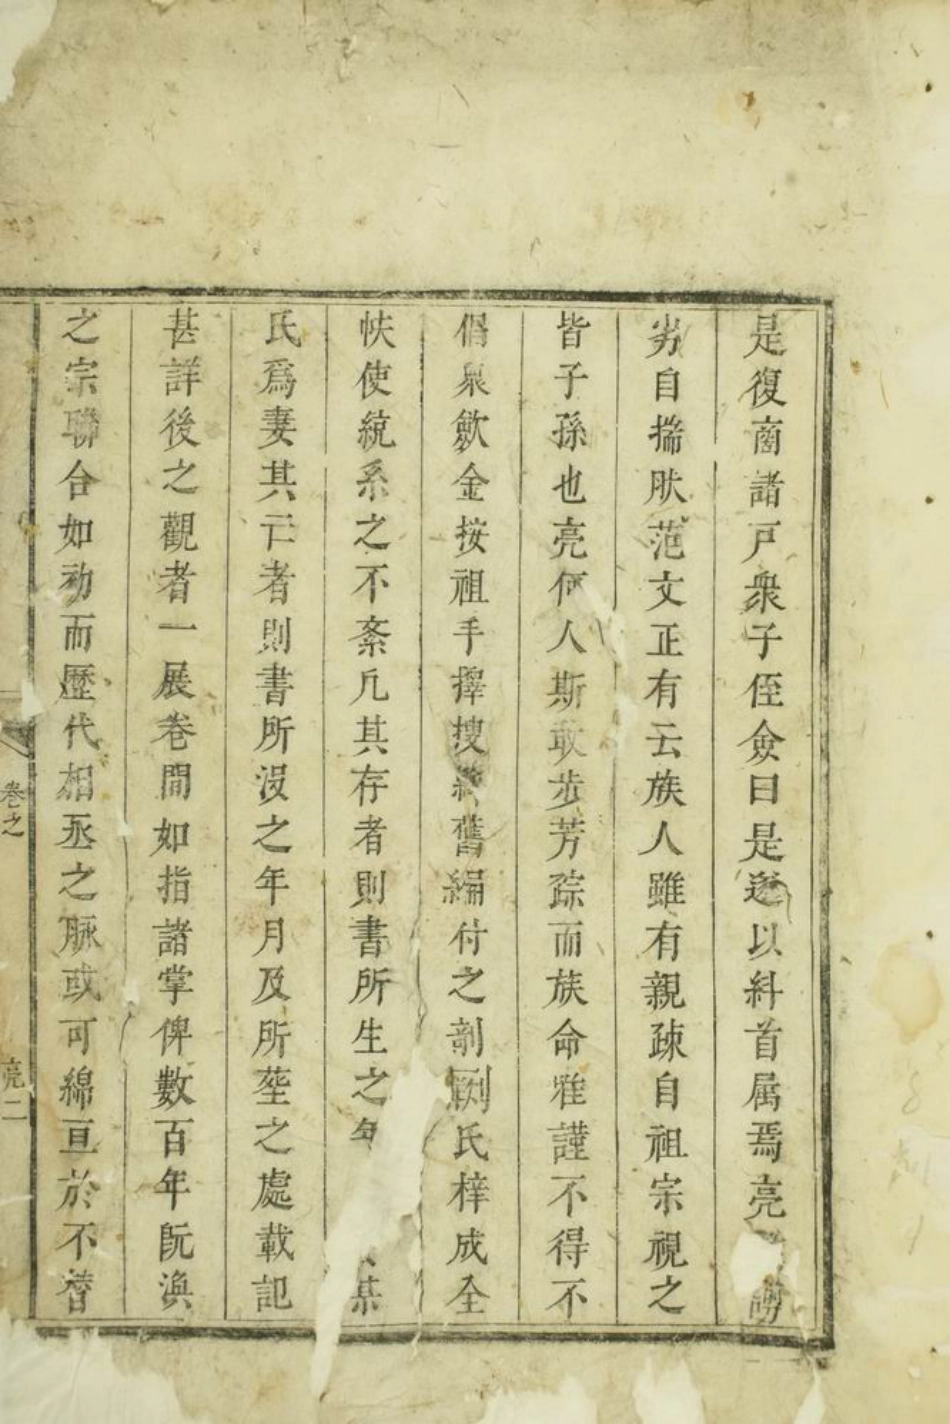 是復啇諸戸衆子侄僉曰是迯以糾首属焉亮謭
劣自揣肤范文正有云族人雖有親疎自祖宗視之
皆子孫也亮何人斯敢步芳踪而族命难謹不得不
倡衆歛金按祖手擇搜舊編付之剞劂氏梓成全
帙使統系之不紊凡其存者則書所生之年某
氏爲妻其亡者則書所没之年月及所塟之處載記
甚詳後之觀者一展卷間如指諸掌俾數百年既渙
之宗聯合如初而歷代相丞之脈或可綿亘於不替
卷之
亮二